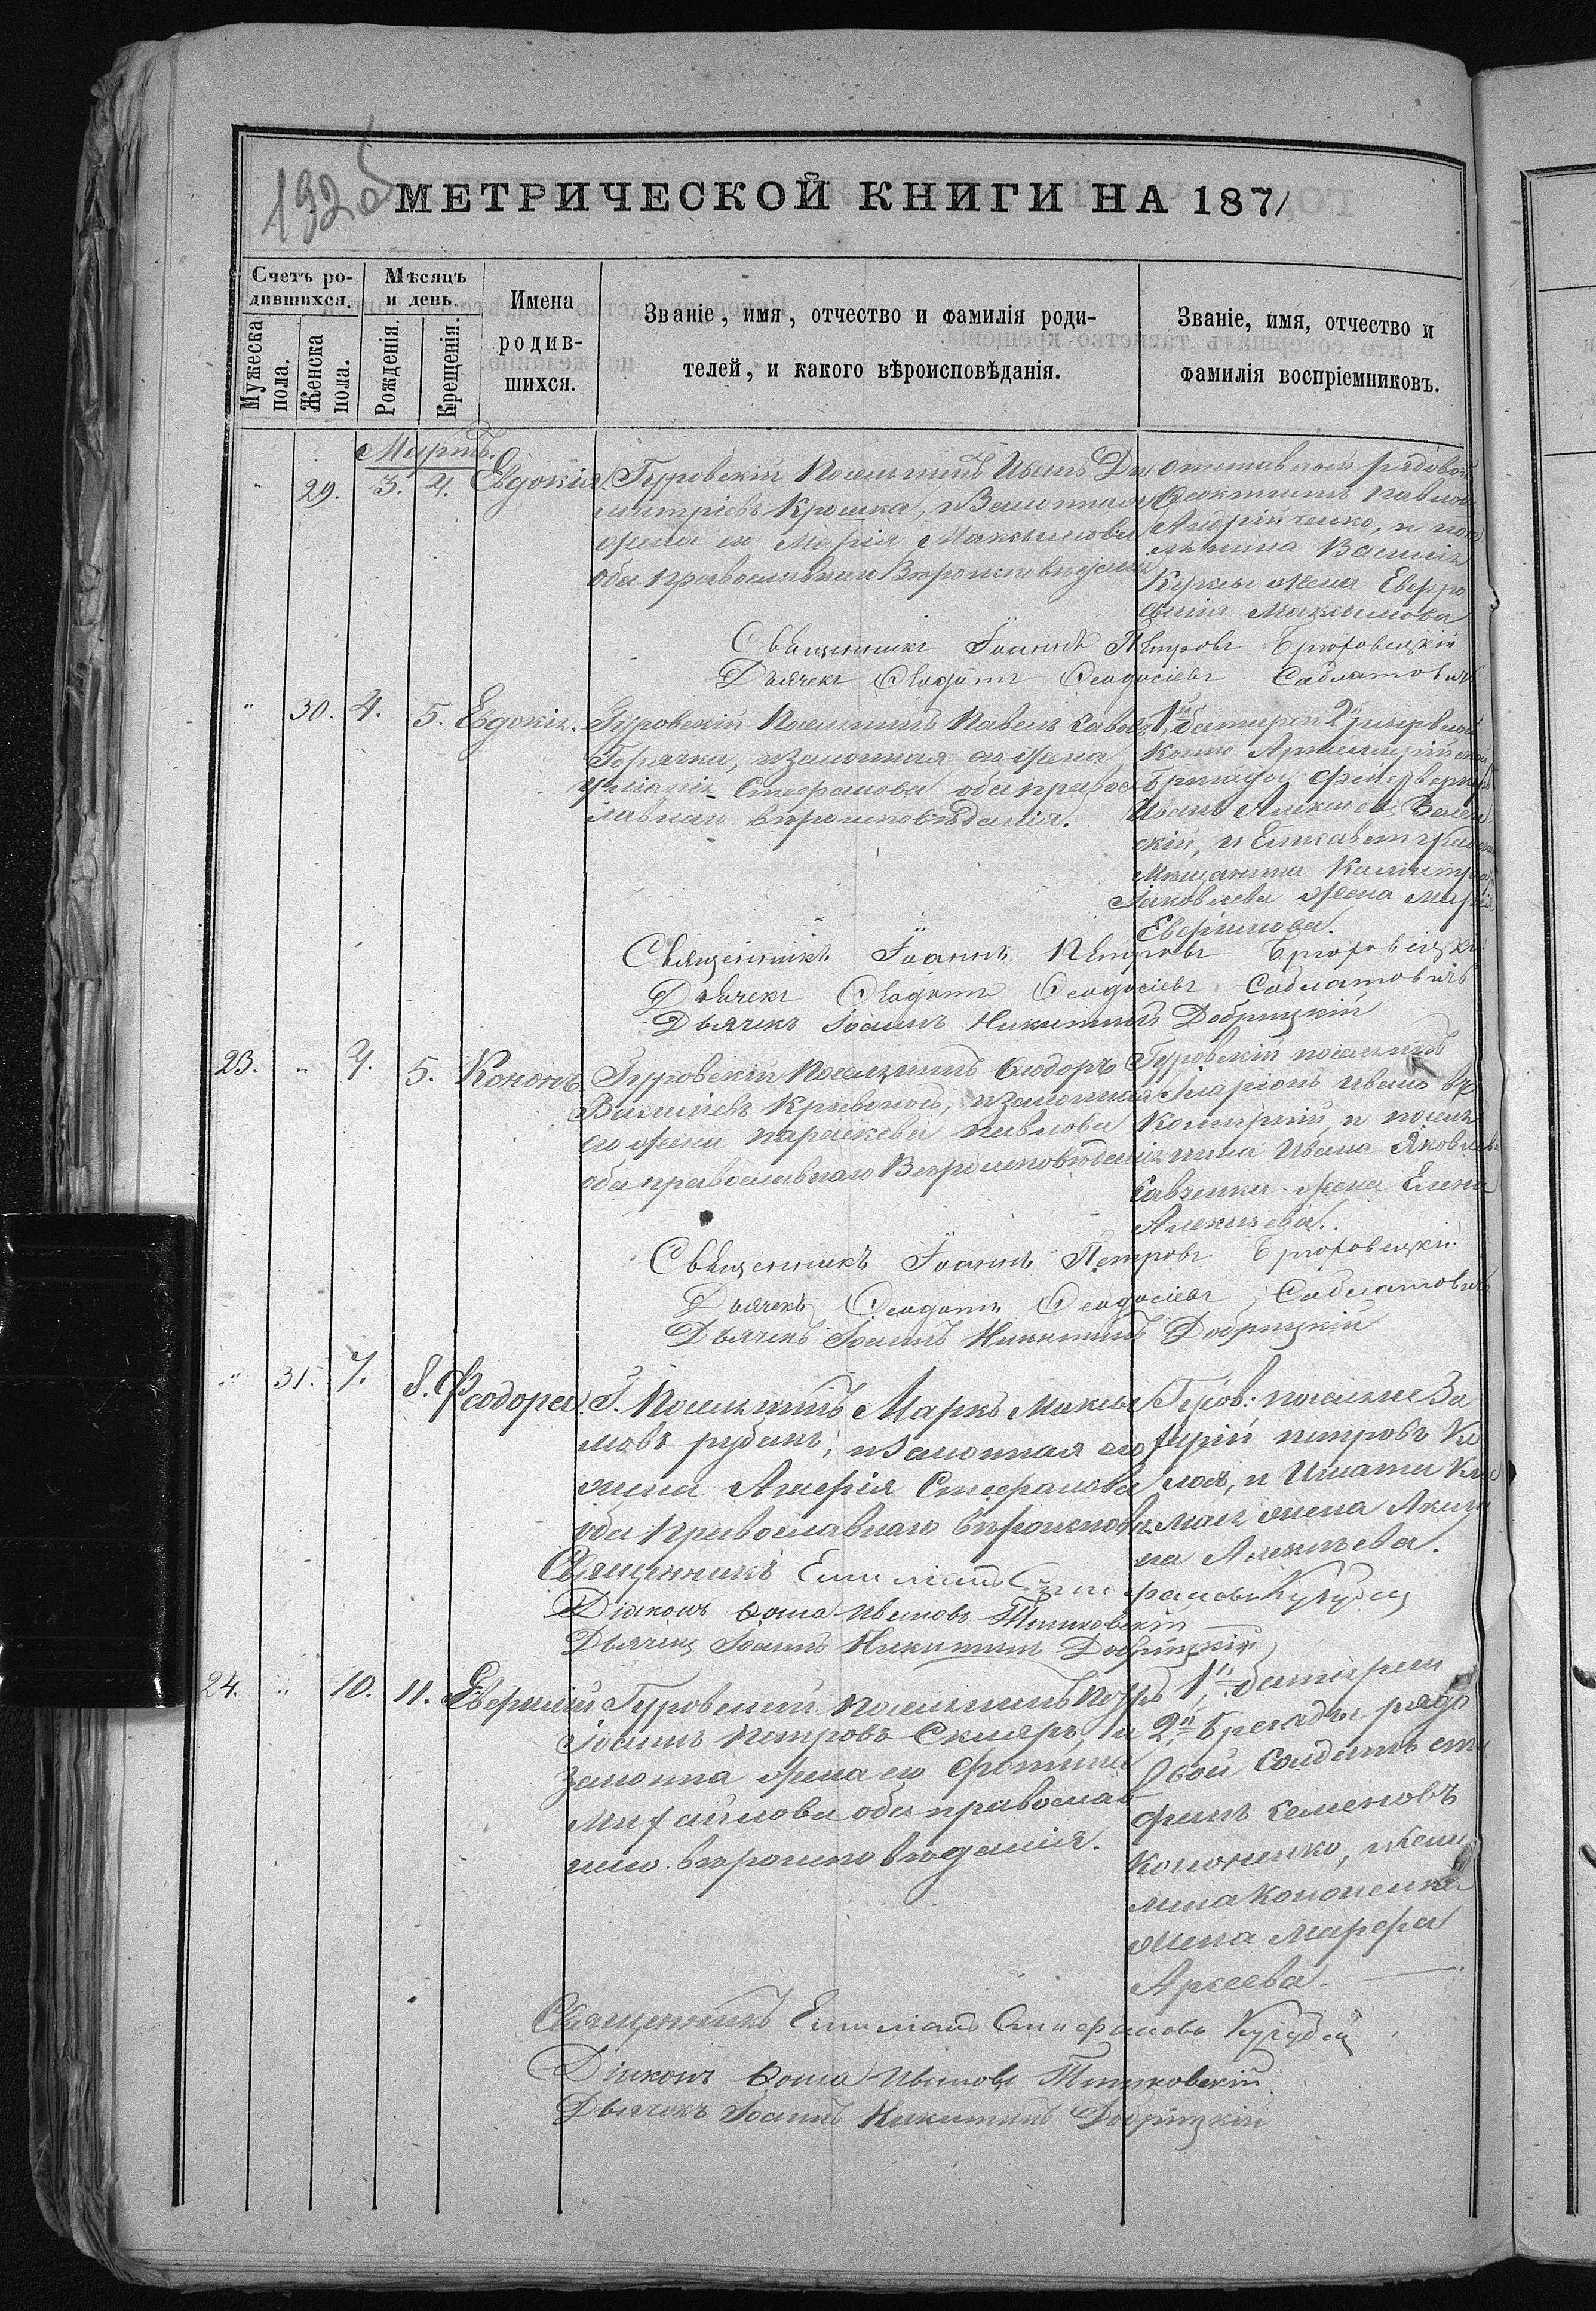 192об
МЕТРИЧЕСКОЙ КНИГИ НА 1871
Счетъ ро-
дившихся.
Мужеска
пола.
Женска
пола.
Мѣсяцъ
и день.
Рожденія.
Крещенія.
Имена
родив-
шихся.
Званіе, имя, отчество и фамилія роди-
телей, и какого вѣроисповѣданія.
Званіе, имя, отчество и
фамилія воспріемниковъ.
Мартъ.
" 29. 3. 4. Евдокія.
Гуровскій Поселянинъ Иванъ Ди
митріевъ Крошка, и Законная
жена его Марія Максимова
оба православнаго Вѣроисповѣданія
отставной рядовой
Ѳеоктистъ Павловъ
Андрійченко, и посе
лянина Василія
жена Евфро
синія Максимова
Священникъ Іоаннъ Петровъ Брюховецкій
Дьячекъ Ѳеодотъ Ѳеодосіевъ Саблатовичъ
" 30. 4. 5. Евдокія.
Гуровскій Поселянинъ Павелъ Савовъ
Горячка, и Законная его жена
Стефанова оба правос
лавнаго вѣроисповѣданія.
1й батареи 2й резервной
Конно Артиллерійской
Бригады Фейерверкеръ
Иванъ Алексѣевъ
скій, и Елисаветград
Мещанина
Іаковлева жена Марія
Евфимова.
Священникъ Іоаннъ Петровъ Брюховецкій
Дьячекъ Ѳеодотъ Ѳеодосіевъ Саблатовичъ
Дьячекъ Іоаннъ Никитинъ Добрицкій
23. " 4. 5. Кононъ
Гуровскій Поселянинъ Ѳеодоръ
Василіевъ Кривоносъ, и законная
его жена Параскева Павлова
оба православнаго Вѣроисповѣданія
Гуровскій поселянинъ
Иларіонъ Ивановъ
и посел
янина Ивана Яковлева
Савченка жена Елена
Алексѣева.
Священникъ Іоаннъ Петровъ Брюховецкій
Дьячекъ Ѳеодотъ Ѳеодосіевъ Саблатовичъ
Дьячекъ Іоаннъ Никитинъ Добрицкій
" 31. 7. 8. Феодора.
Г. Поселянинъ Маркъ Макси
мовъ рубанъ, и Законная его
жена Стефанова
оба Православнаго вѣроисповѣ.
Гуров: поселяне За
харій петровъ Ки
жена Акили
на Алексѣева.
Священникъ Емиліанъ Стефановъ Кугубей
Діаконъ Ѳома Ивановъ
Дьячекъ Іоаннъ Никитинъ Добрицкій
24. " 10. 11. Евфимій
Гуровскій поселянинъ
Іоаннъ Петровъ Скляръ, и
законна жена его Фотина
Михайлова оба православ
наго вѣроисповѣданія.
1й батареи
2й Бригады рядо
вой Солдатъ
Семеновъ
Кононенко, и
Кононенка
жена Марфа
Священникъ Емиліанъ Стефановъ Кугубей
Діаконъ Ѳома Ивановъ
Дьячекъ Іоаннъ Никитинъ Добрицкій